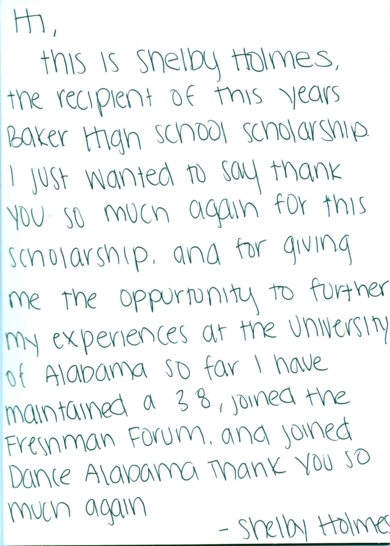 Hi,
this is Shelby Holmes,
the recipient of this years
Baker High school scholarship.
I just wanted to say thank
you so much again for this
scholarship. and for giving
me the oppurtunity to further
my experiences at the University
of Alabama so far I have
maintained a 3.8, joined the
Freshman Forum. and joined
Dance Alabama Thank you so
much again
- Shelby Holmes